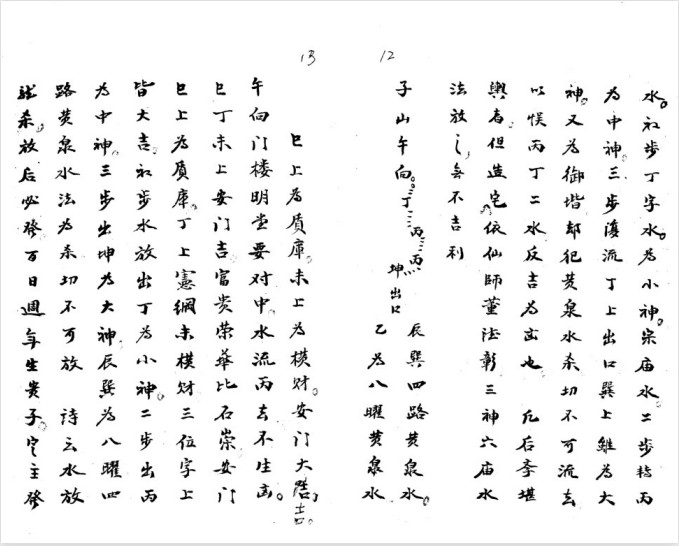 12
水。初步丁字水。为小神。宗庙水。二步转丙
为中神三步流丁上出口巽上虽为大
神。又为御堦却犯黄泉水杀切不可流去
以悮丙丁二水反吉为凶也 凡后李堪
舆者但造宅。依仙师董德彰三神六庙水
法放之无不吉利
子山午向。丁丙丙。坤出口
辰巽四路黄泉水。
乙为八曜黄泉水
13
巳上为质库。未上为横财。安门大吉。
午向门楼明堂要对中。水流丙去不生凶。
巳丁未上安门吉富贵荣华比石崇安门
巳上为质库。丁上宪纲未横财三位字上
皆大吉。初步水放出丁为小神。二步出丙
为中神。三步出坤为大神。辰巽为八曜四
路黄泉水法为杀切不可放 诗云水放
杀。放后必发万日週年生贵子。定主发